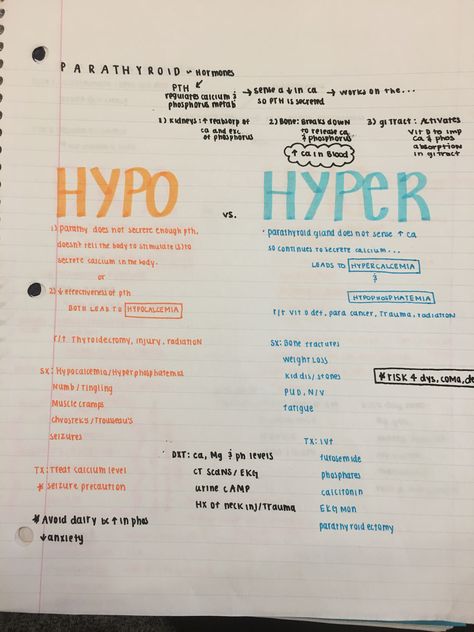 PARATHYROID ~ Hormones
PTH
regulates calcium &
phosphorus metab
→ sense a ↓ in ca
so PTH is secreted
→ works on the...
1) Kidneys: ↑ reabsorp of
ca and exc
of phosphorus
2) Bone: Breaks down
to release ca
& phosphorus
↑ ca in Blood
3) GI Tract: Activates
Vit D to imp
ca & phos
absorption
in GI Tract
HYPO
vs.
HYPER
1) parathy does not secrete enough pth,
doesn't tell the body to stimulate (s) to
secrete calcium in the body.
or
2) ↓ effectiveness of pth
BOTH LEAD TO HYPOCALCEMIA
r/t Thyroidectomy, injury, radiation
SX: Hypocalcemia/Hyperphosphatemia
Numb/Tingling
Muscle cramps
Chvosteks/Trouseau's
seizures
TX: Treat calcium level
* seizure precaution
* Avoid dairy bc ↑ in phos
↓ anxiety
parathyroid gland does not sense ↑ ca
so continues to secrete calcium...
LEADS TO HYPERCALCEMIA
&
HYPOPHOSPHATEMIA
r/t vit D def, para cancer, Trauma, radiation
SX: Bone fractures
weight Loss
kiddis/stones
PUD, N/V
fatigue
* RISK 4 dys, COMA, de
DXT: ca, Mg & ph levels
CT scans/EKG
urine cAMP
HX of neck inj/Trauma
TX: IVF
furosemide
phosphates
calcitonin
EKG MON
parathyroidectomy